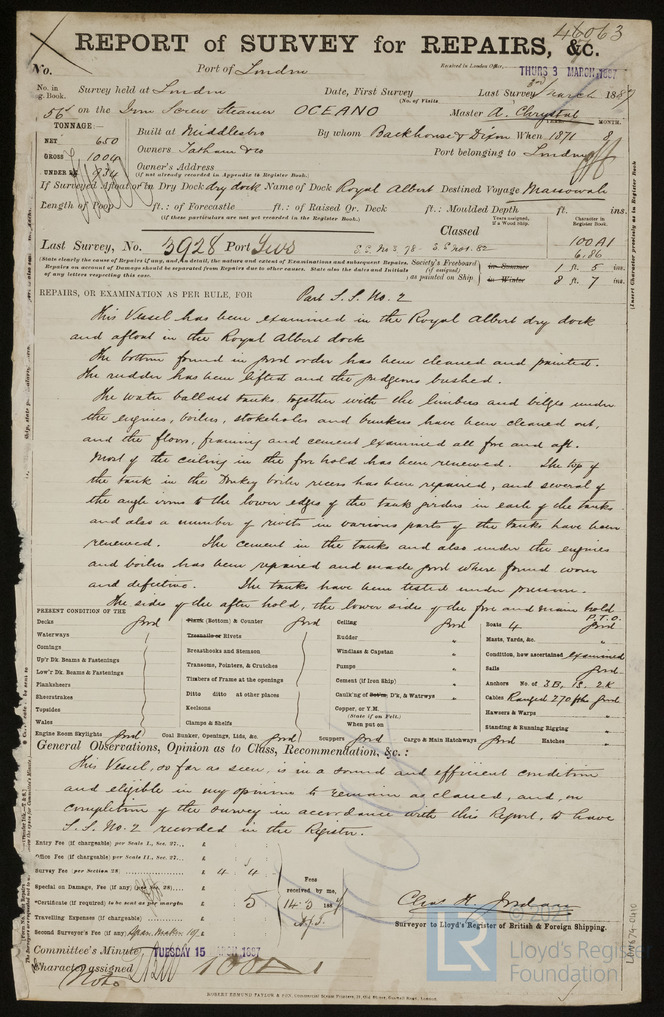 46063
REPORT of SURVEY for REPAIRS, &c.
No.
Port of London
Received in London Office,
THURS 3 MARCH 1887
No. in Reg. Book.
Survey held at London
Date, First Survey
Last Survey 3rd March 1887
(No. of Visits
56 on the Iron Screw Steamer OCEANO
Master A. Chrystal
TONNAGE:—
YEAR.
MONTH.
NET 650
Built at Middlesbro
By whom Backhouse & Dixon When 1871 8
GROSS 1004
Owners Tatham & Co
Port belonging to London
UNDER DK 934
Owner's Address
(if not already recorded in Appendix to Register Book.)
If Surveyed Afloat or in Dry Dock dry dock Name of Dock Royal Albert Destined Voyage Massowah
Length of Poop ft.: of Forecastle ft.: of Raised Qr. Deck ft.: Moulded Depth ft. ins.
(if these particulars are not yet recorded in the Register Book.)
Classed
Years assigned, if a Wood Ship.
Character in Register Book.
(Insert Character precisely as in Register Book
Last Survey, No. 3928 Port
S.S. No 3. 78 - S.S. No 1. 82
100 A1
6.86
(State clearly the cause of Repairs if any, and, in detail, the nature and extent of Examinations and subsequent Repairs.
Repairs on account of Damage should be separated from Repairs due to other causes. State also the dates and Initials
of any letters respecting this case.
Society's Freeboard (if assigned) as painted on Ship
in Summer 1 ft. 5 ins.
in Winter 8 ft. 7 ins.
REPAIRS, OR EXAMINATION AS PER RULE, FOR Part S.S. No. 2
This Vessel has been examined in the Royal Albert dry dock
and afloat in the Royal Albert dock
The bottom found in good order has been cleaned and painted.
The rudder has been lifted and the gudgeons bushed.
The water ballast tanks together with the limbers and bilges under
the engines, boilers, stokeholes and bunkers have been cleaned out,
and the floors, framing and cement examined all fore and aft.
Most of the ceiling in the fore hold has been renewed. The top of
the tank in the Donkey boiler recess has been repaired, and several of
the angle irons to the lower edges of the tank girders in each of the tanks
and also a number of rivets in various parts of the tanks have been
renewed. The cement in the tanks and also under the engines
and boilers has been repaired and made good where found worn
and defective. The tanks have been tested under pressure.
The sides of the after hold, the lower sides of the fore and main hold
P.T.O.
PRESENT CONDITION OF THE
Decks good
Waterways
Comings
Up'r Dk. Beams & Fastenings
Low'r Dk. Beams & Fastenings
Planksheers
Sheerstrakes
Topsides
Wales
Engine Room Skylights good
Plank (Bottom) & Counter good
Treenails or Rivets
Breasthooks and Stemson
Transoms, Pointers, & Crutches
Timbers of Frame at the openings
Ditto ditto at other places
Keelsons
Clamps & Shelfs
Coal Bunker, Openings, Lids, &c. good
Ceiling good
Rudder "
Windlass & Capstan "
Pumps "
Cement (if Iron Ship) "
Caulk'ng of Bot'm, D'k, & Watrwys "
Copper, or Y.M.
(State if on Felt.)
When put on
Scuppers good
Cargo & Main Hatchways good
Boats 4 good
Masts, Yards, &c. "
Condition, how ascertained examined
Sails good
Anchors No. of 3B, 1S, 2K
Cables Ranged 270 fths good
Hawsers & Warps "
Standing & Running Rigging "
Hatches "
General Observations, Opinion as to Class, Recommendation, &c.:
This Vessel, so far as seen, is in a sound and efficient condition
and eligible in my opinion to remain as classed, and, on
completion of the survey in accordance with this Report, to have
S.S. No. 2 recorded in the Register.
Entry Fee (if chargeable) per Scale I., Sec. 27... £
Office Fee (if chargeable) per Scale II., Sec. 27... £
Survey Fee (per Section 28) £ 4 4
Special on Damage, Fee (if any) (per Sec. 28) £
*Certificate (if required) to be sent as per margin £ 5
Travelling Expenses (if chargeable) £
Second Surveyor's Fee (if any) £
Fees
received by me,
14-3 1887
Chas H. Jordan
Surveyor to Lloyd's Register of British & Foreign Shipping.
Committee's Minute TUESDAY 15 MARCH 1887
Character assigned 100 A1
Note
ROBERT EDMUND TAYLOR & SON, Commercial Steam Printers, 19, Old Street, Goswell Road, London.
LR
© 202
Lloyd's Register
Foundation